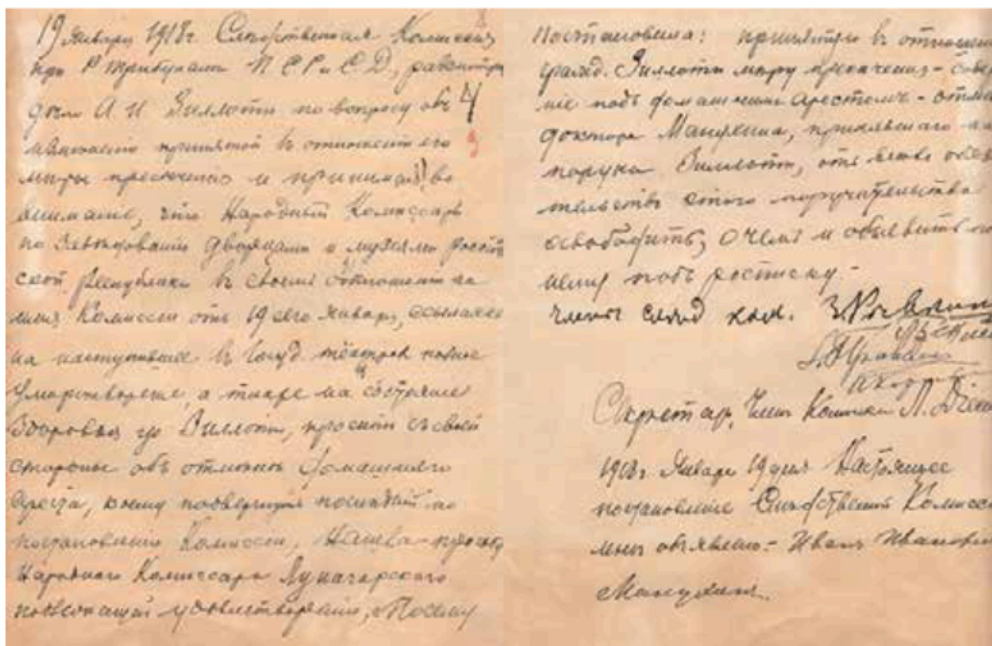 19 Января 1918г. Следственная Комиссия
при Р. Трибунале П. С. Р. и С. Д, рассмотрѣв
дѣло А. И. Зиллоти по вопросу объ
измѣненiи принятой въ отношенiи его
мѣры пресѣченiя и принимая во
вниманiе, что Народный Комиссаръ
по завѣдованiю дворцами и музеями россiй
ской Республики въ своемъ отношенiи за
Комиссiи отъ 19 сего Января, ссылаясь
на наступившее въ Госуд. театрах полное
умиротворенiе, а также на состоянiе
Здоровья гр Зиллоти, проситъ съ своей
стороны объ отмѣнѣ домашняго
ареста, коему подвергнутъ послѣднiй по
постановленiю Комиссiи, Нашла просьбу
Народного Комиссара Луначарского
подлежащей удовлетворенiю, Посему
Постановила: принятую въ отношенiи
гражд. Зиллоти мѣру пресѣченiя
подъ домашнимъ арестомъ
доктора Манухина, принявшаго на
поруки Зиллоти, отъ
этого поручительства
освободить, о чемъ и объявить
подъ росписку.
Члены слѣд ком.
Секретар, Членъ Комиссiи
1918г. Января 19 дня Настоящее
постановленiе Слѣдственной Комиссiи
мнѣ объявлено: Иванъ Ивановичъ
Манухинъ.